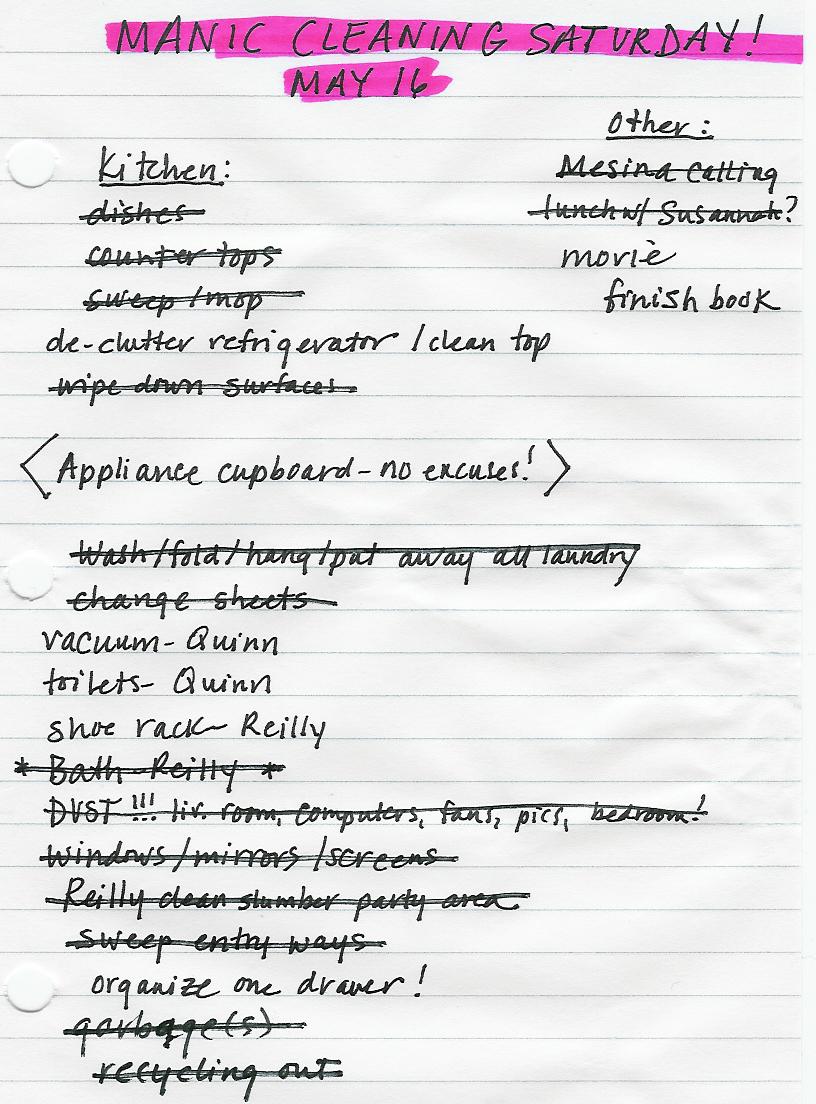 MANIC CLEANING SATURDAY!
MAY 16
Other:
Mesina calling
lunch w/ Susannah?
movie
finish book
Kitchen:
dishes
counter tops
sweep/mop
de-clutter refrigerator/clean top
wipe down surfaces
<Appliance cupboard - no excuses!>
Wash/fold/hang/put away all laundry
change sheets
vacuum - Quinn
toilets - Quinn
shoe rack - Reilly
* Bath - Reilly *
DUST!!! liv. room, computers, fans, pics, bedroom!
windows/mirrors/screens
Reilly clean slumber party area
sweep entry ways
organize one drawer!
garbage(s)
recycling out